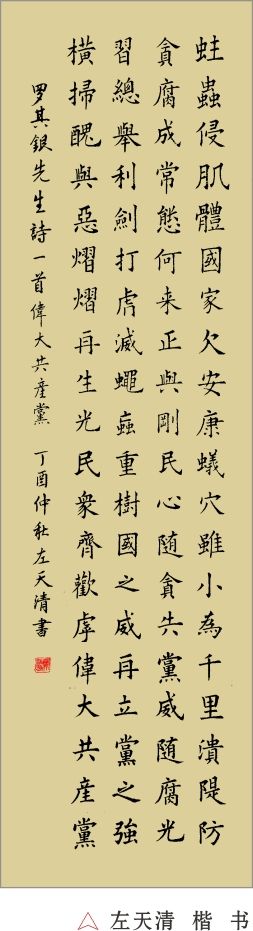 蛀蟲侵肌體國家欠安康蟻穴雖小為千里潰隄防
貪腐成常態何来正與剛民心随貪失黨威随腐光
習總舉利劍打虎滅蠅重樹國之威再立黨之強
橫掃醜與惡熠熠再生光民衆齊歡虖偉大共産黨
罗其銀先生詩一首偉大共産黨 丁酉仲秋左天清書
左天清 楷 书